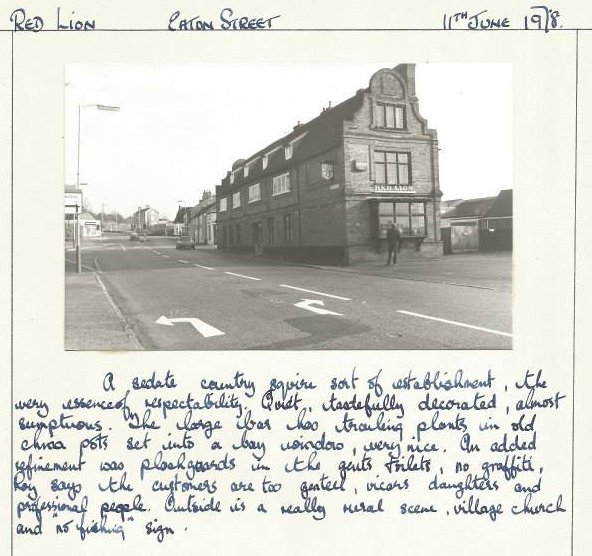 RED LION EATON STREET 11TH JUNE 1978.
RED LION
A sedate country squire sort of establishment, the
very essence of respectability. Quiet, tastefully decorated, almost
sumptuous. The large bar has trailing plants in old
china pots set into a bay window, very nice. An added
refinement was ploshguards in the gents toilets, no graffiti,
Roy says the customers are too genteel, vicars daughters and
professional people. Outside is a really rural scene, village church
and "no fishing" sign.